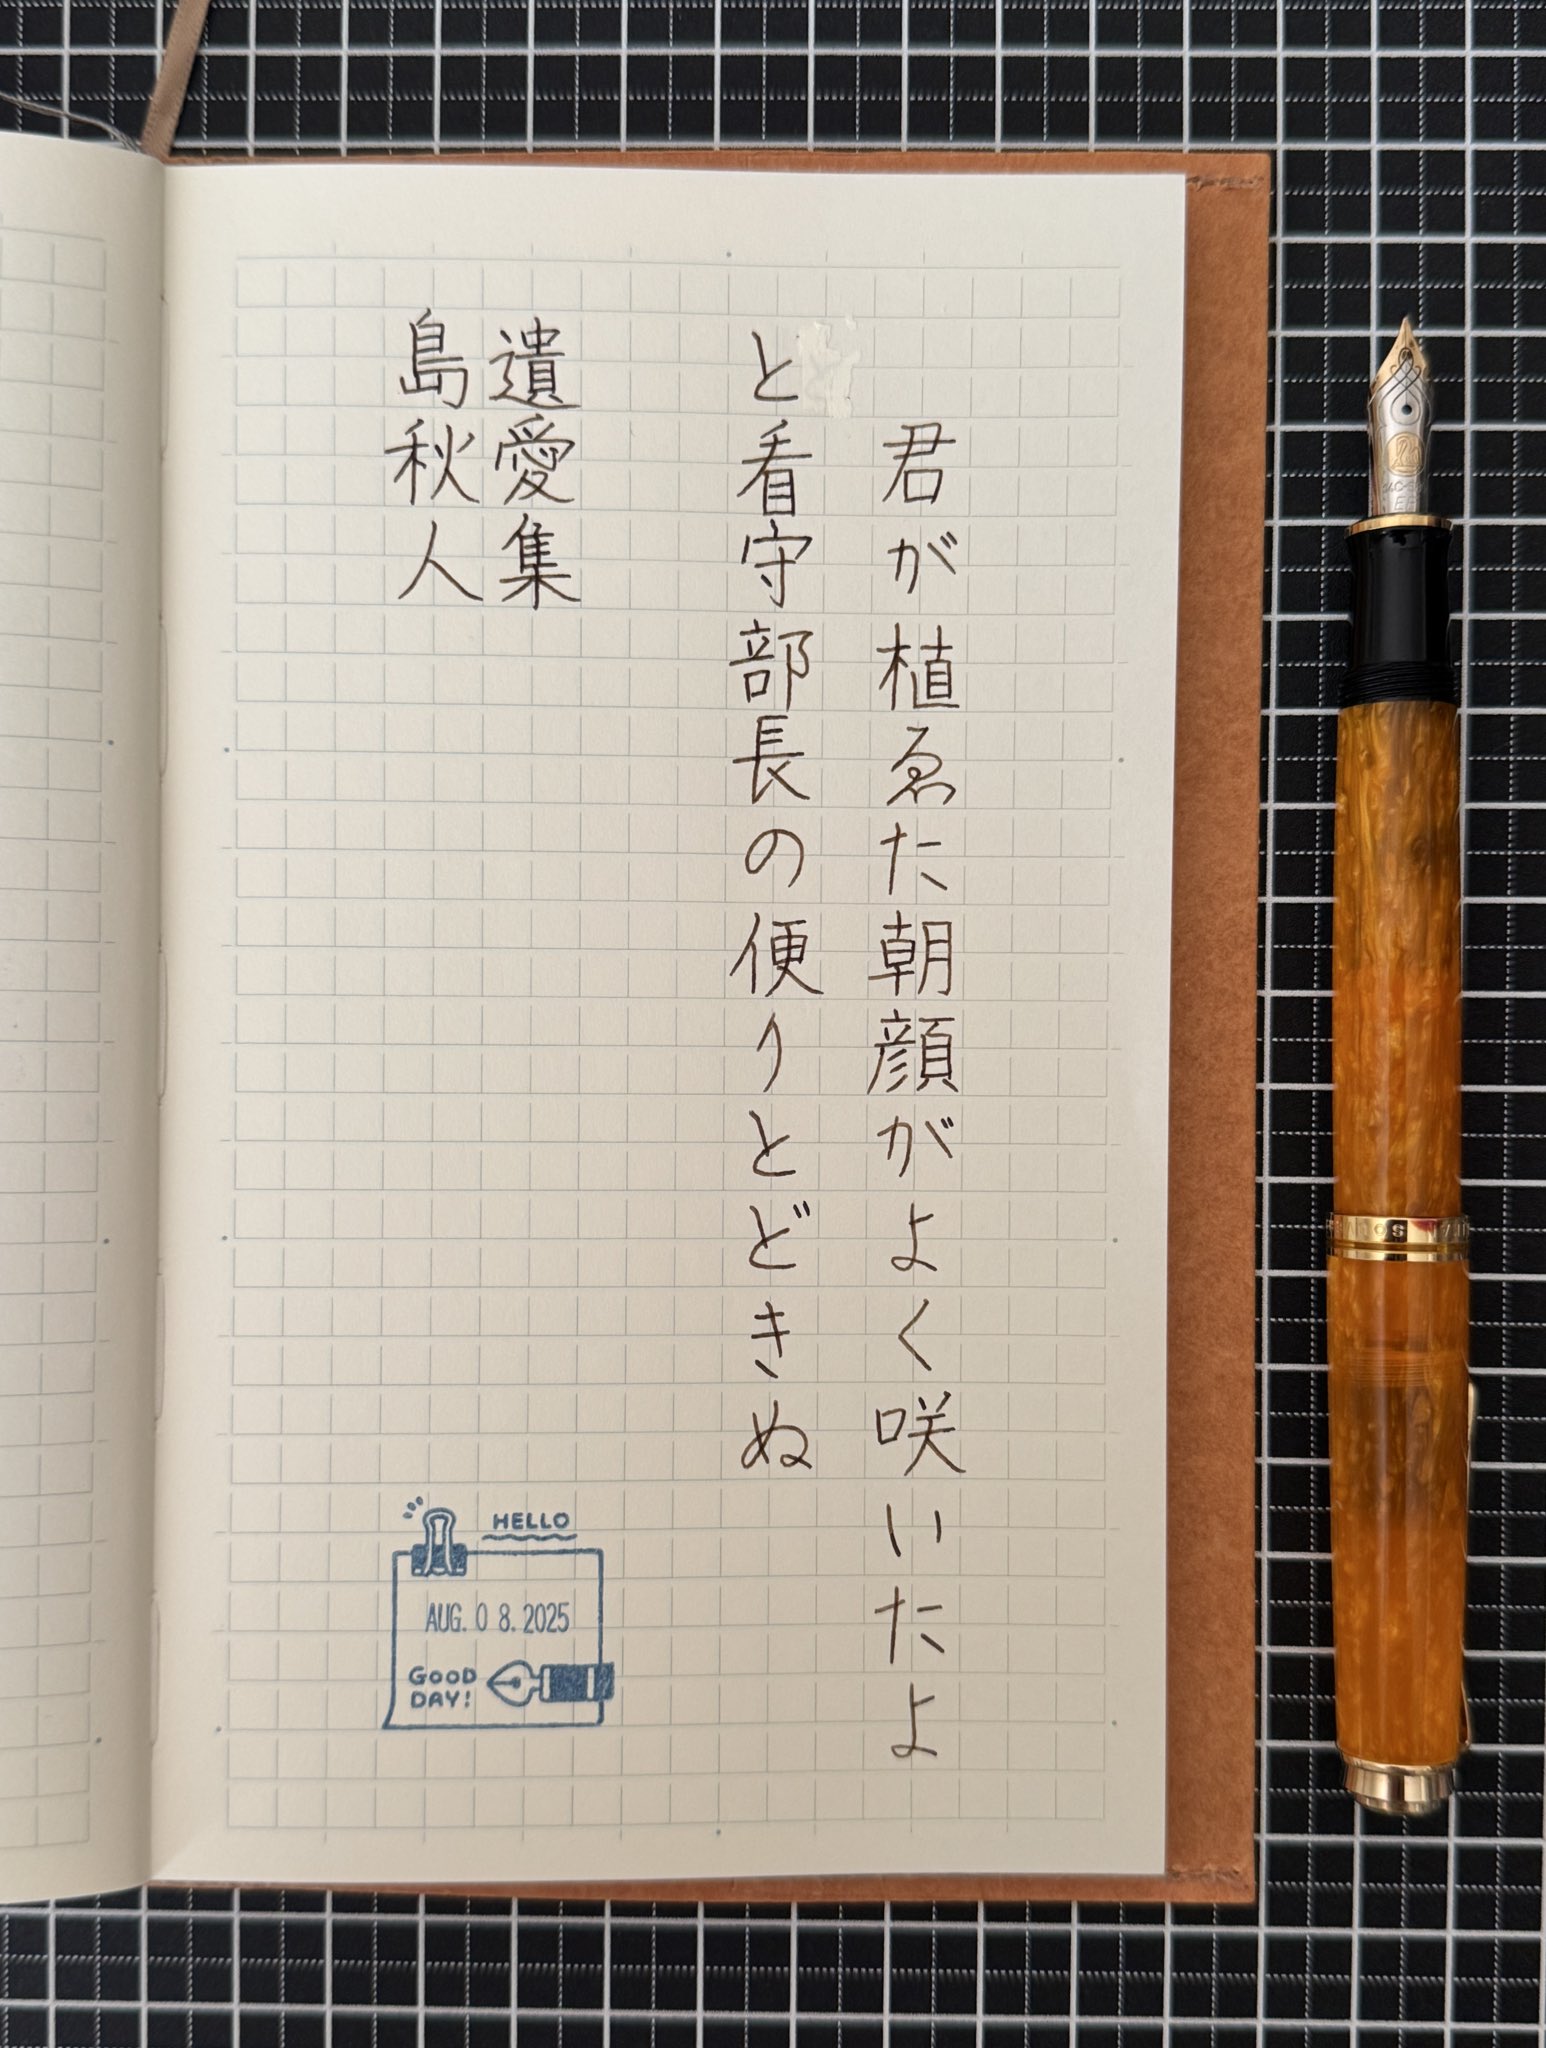 君が植ゑた朝顔がよく咲いたよ
と看守部長の便りとどきぬ
遺愛集
島秋人
HELLO
AUG. 08. 2025
GOOD
DAY!